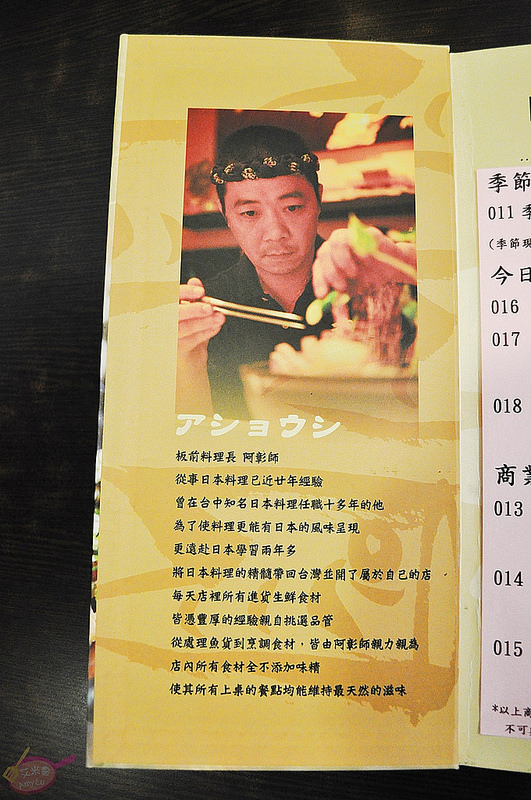 アショウシ
板前料理長 阿彰師
從事日本料理已近廿年經驗
曾在台中知名日本料理任職十多年的他
為了使料理更能有日本的風味呈現
更遠赴日本學習兩年多
將日本料理的精髓帶回台灣並開了屬於自己的店
每天店裡所有進貨生鮮食材
皆憑豐厚的經驗親自挑選品管
從處理魚貨到烹調食材，皆由阿彰師親力親為
店內所有食材全不添加味精
使其所有上桌的餐點均能維持最天然的滋味
季節
011 季
(季節現
今日
016
017
018
商業
013
014
015
*以上商
不可